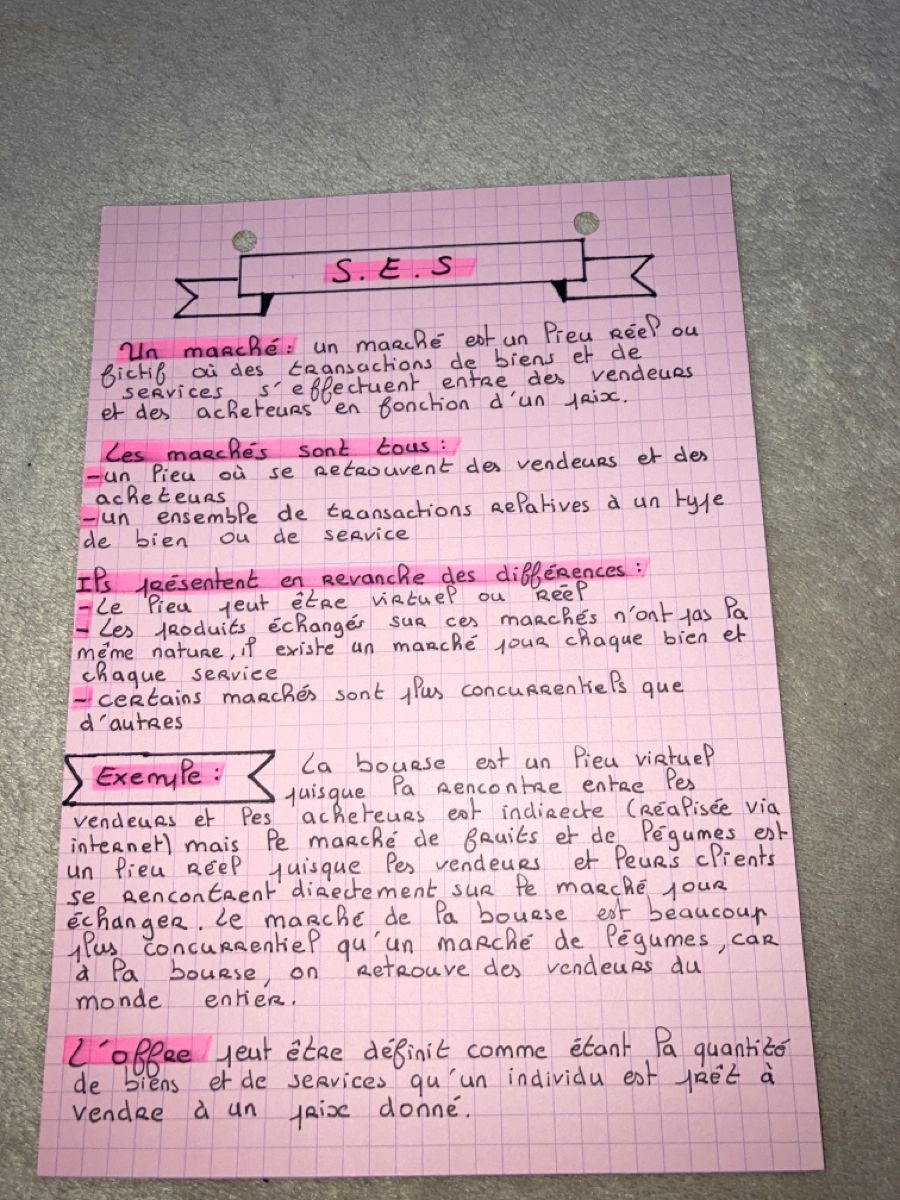 S.E.S
Un marché : un marché est un lieu réel ou
fictif où des transactions de biens et de
services s'effectuent entre des vendeurs
et des acheteurs en fonction d'un prix.
Les marchés sont tous :
-un lieu où se retrouvent des vendeurs et des
acheteurs
-un ensemble de transactions relatives à un type
de bien ou de service
Ils présentent en revanche des différences :
-Le lieu peut être virtuel ou réel
-Les produits échangés sur ces marchés n'ont pas la
même nature, il existe un marché pour chaque bien et
chaque service
-certains marchés sont plus concurrentiels que
d'autres
Exemple : La bourse est un lieu virtuel
puisque la rencontre entre les
vendeurs et les acheteurs est indirecte (réalisée via
internet) mais le marché de fruits et de légumes est
un lieu réel puisque les vendeurs et leurs clients
se rencontrent directement sur le marché pour
échanger. Le marché de la bourse est beaucoup
plus concurrentiel qu'un marché de légumes, car
à la bourse, on retrouve des vendeurs du
monde entier.
L'offre peut être définit comme étant la quantité
de biens et de services qu'un individu est prêt à
vendre à un prix donné.